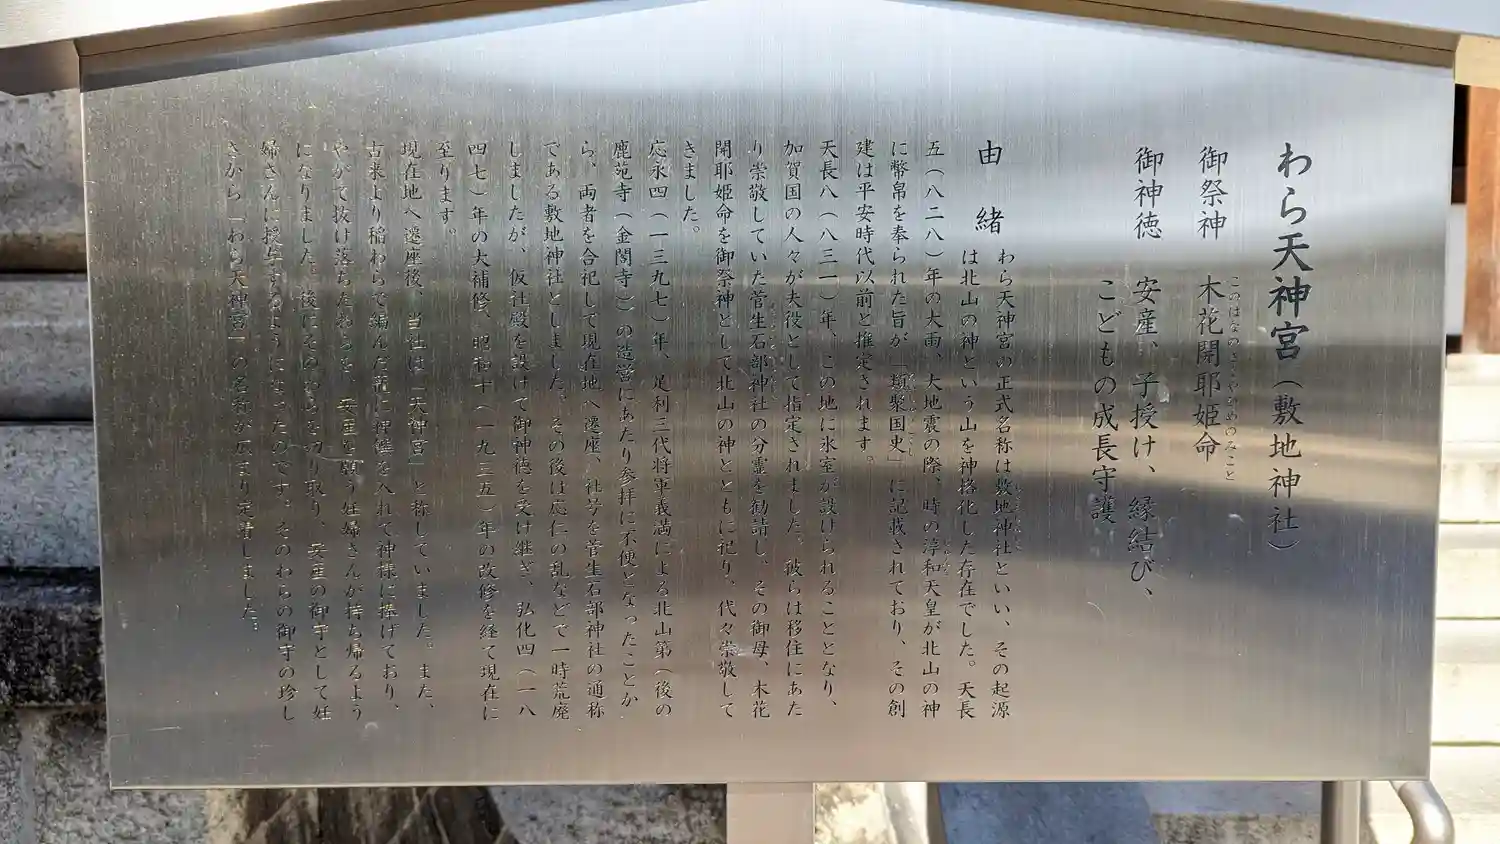 わら天神宮（敷地神社）
御祭神　木花開耶姫命
このはなのさくやひめのみこと
御神徳　安産、子授け、縁結び、
こどもの成長守護
由緒
わら天神宮の正式名称は敷地神社といい、その起源
は北山の神という山を神格化した存在でした。天長
五（八二八）年の大雨、大地震の際、時の淳和天皇が北山の神
に幣帛を奉られた旨が「類聚国史」に記載されており、その創
建は平安時代以前と推定されます。
天長八（八三一）年、この地に氷室が設けられることとなり、
加賀国の人々が夫役として指定されました。彼らは移住にあた
り崇敬していた菅生石部神社の分霊を勧請し、その御母、木花
開耶姫命を御祭神として北山の神とともに祀り、代々崇敬して
きました。
応永四（一三九七）年、足利三代将軍義満による北山第（後の
鹿苑寺（金閣寺））の造営にあたり参拝に不便となったことか
ら、両者を合祀して現在地へ遷座、社号を菅生石部神社の通称
である敷地神社としました。その後は応仁の乱などで一時荒廃
しましたが、仮社殿を設けて御神徳を受け継ぎ、弘化四（一八
四七）年の大補修、昭和十（一九三五）年の改修を経て現在に
至ります。
現在地へ遷座後、当社は「天神宮」と称していました。また、
古来より稲わらで編んだ籠に神饌を入れて神様に捧げており、
やがて抜け落ちたわらを、安産を願う妊婦さんが持ち帰るよう
になりました。後にそのわらを切り取り、安産の御守として妊
婦さんに授与するようになったのです。そのわらの御守の珍し
さから「わら天神宮」の名称が広まり定着しました。